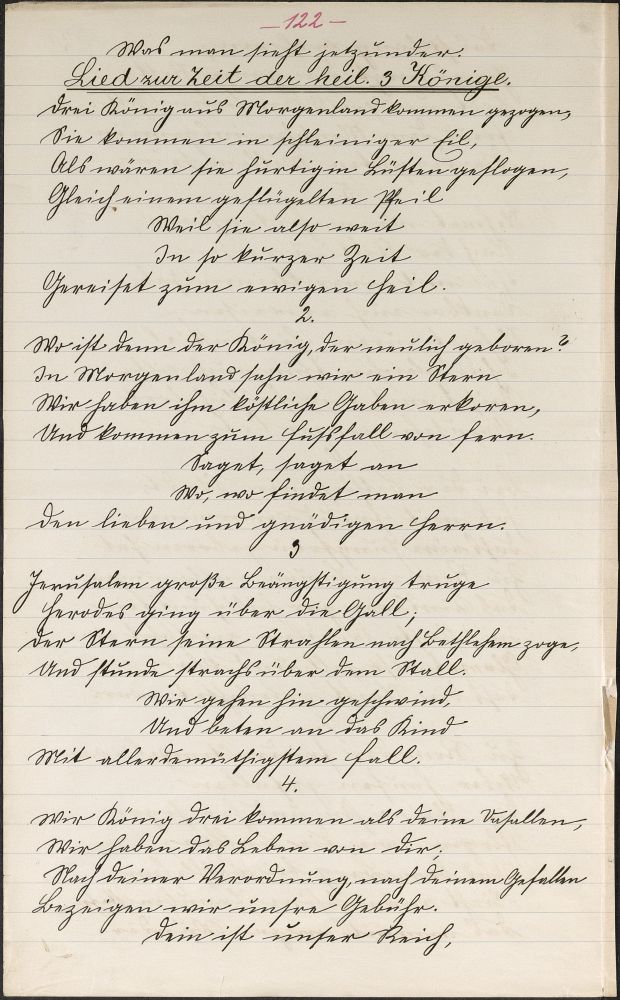 – 122 –
Was man sieht jetzunder.
Lied zur Zeit der heil. 3 Könige.
Drei König aus Morgenland kommen gezogen,
Sie kommen in schleiniger Eil,
Als wären sie hurtig in Lüften geflogen,
Gleich einem geflügelten Pfeil
Weil sie also weit
In so kurzer Zeit
Gereiset zum ewigen Heil.
2.
Wo ist denn der König, der neulich geboren?
In Morgenland sahn wir ein Stern
Wir haben ihm köstliche Gaben erkoren,
Und kommen zum Fußfall von fern.
Saget, saget an
Wo, wo findet man
Den lieben und gnädigen Herrn.
3
Jerusalem große Beängstigung truge
Herodes ging über die Gall;
Der Stern seine Strahlen nach Bethlehem zoge,
Und stunde strachs über dem Stall.
Wir gehen hin geschwind,
Und beten an das Kind
Mit allerdemüthigstem Fall.
4.
Wir König drei kommen als deine Vasallen,
Wir haben das Leben von dir;
Nach deiner Verordnung, nach deinem Gefallen
Bezeigen wir unsre Gebühr.
Dein ist unser Reich,